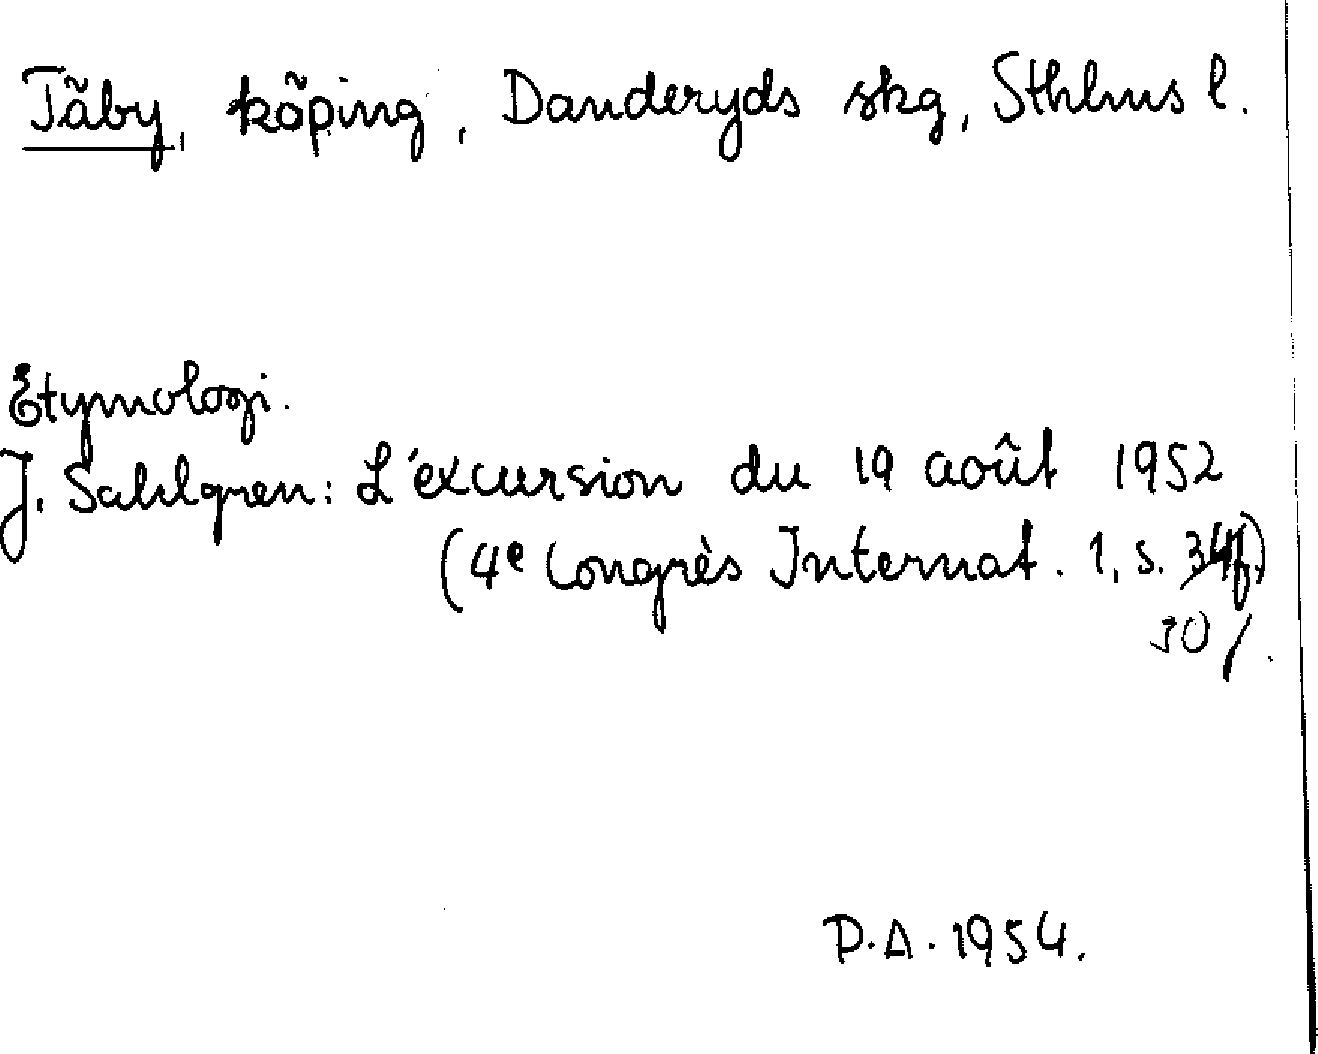 Täby, köping, Danderyds skg, Sthlms l.
Etymologi.
J. Sahlgren: L'excursion du 19 août 1952
(4e Congrès Internat. 1, s. 34f.)
30
P.A. 1954.